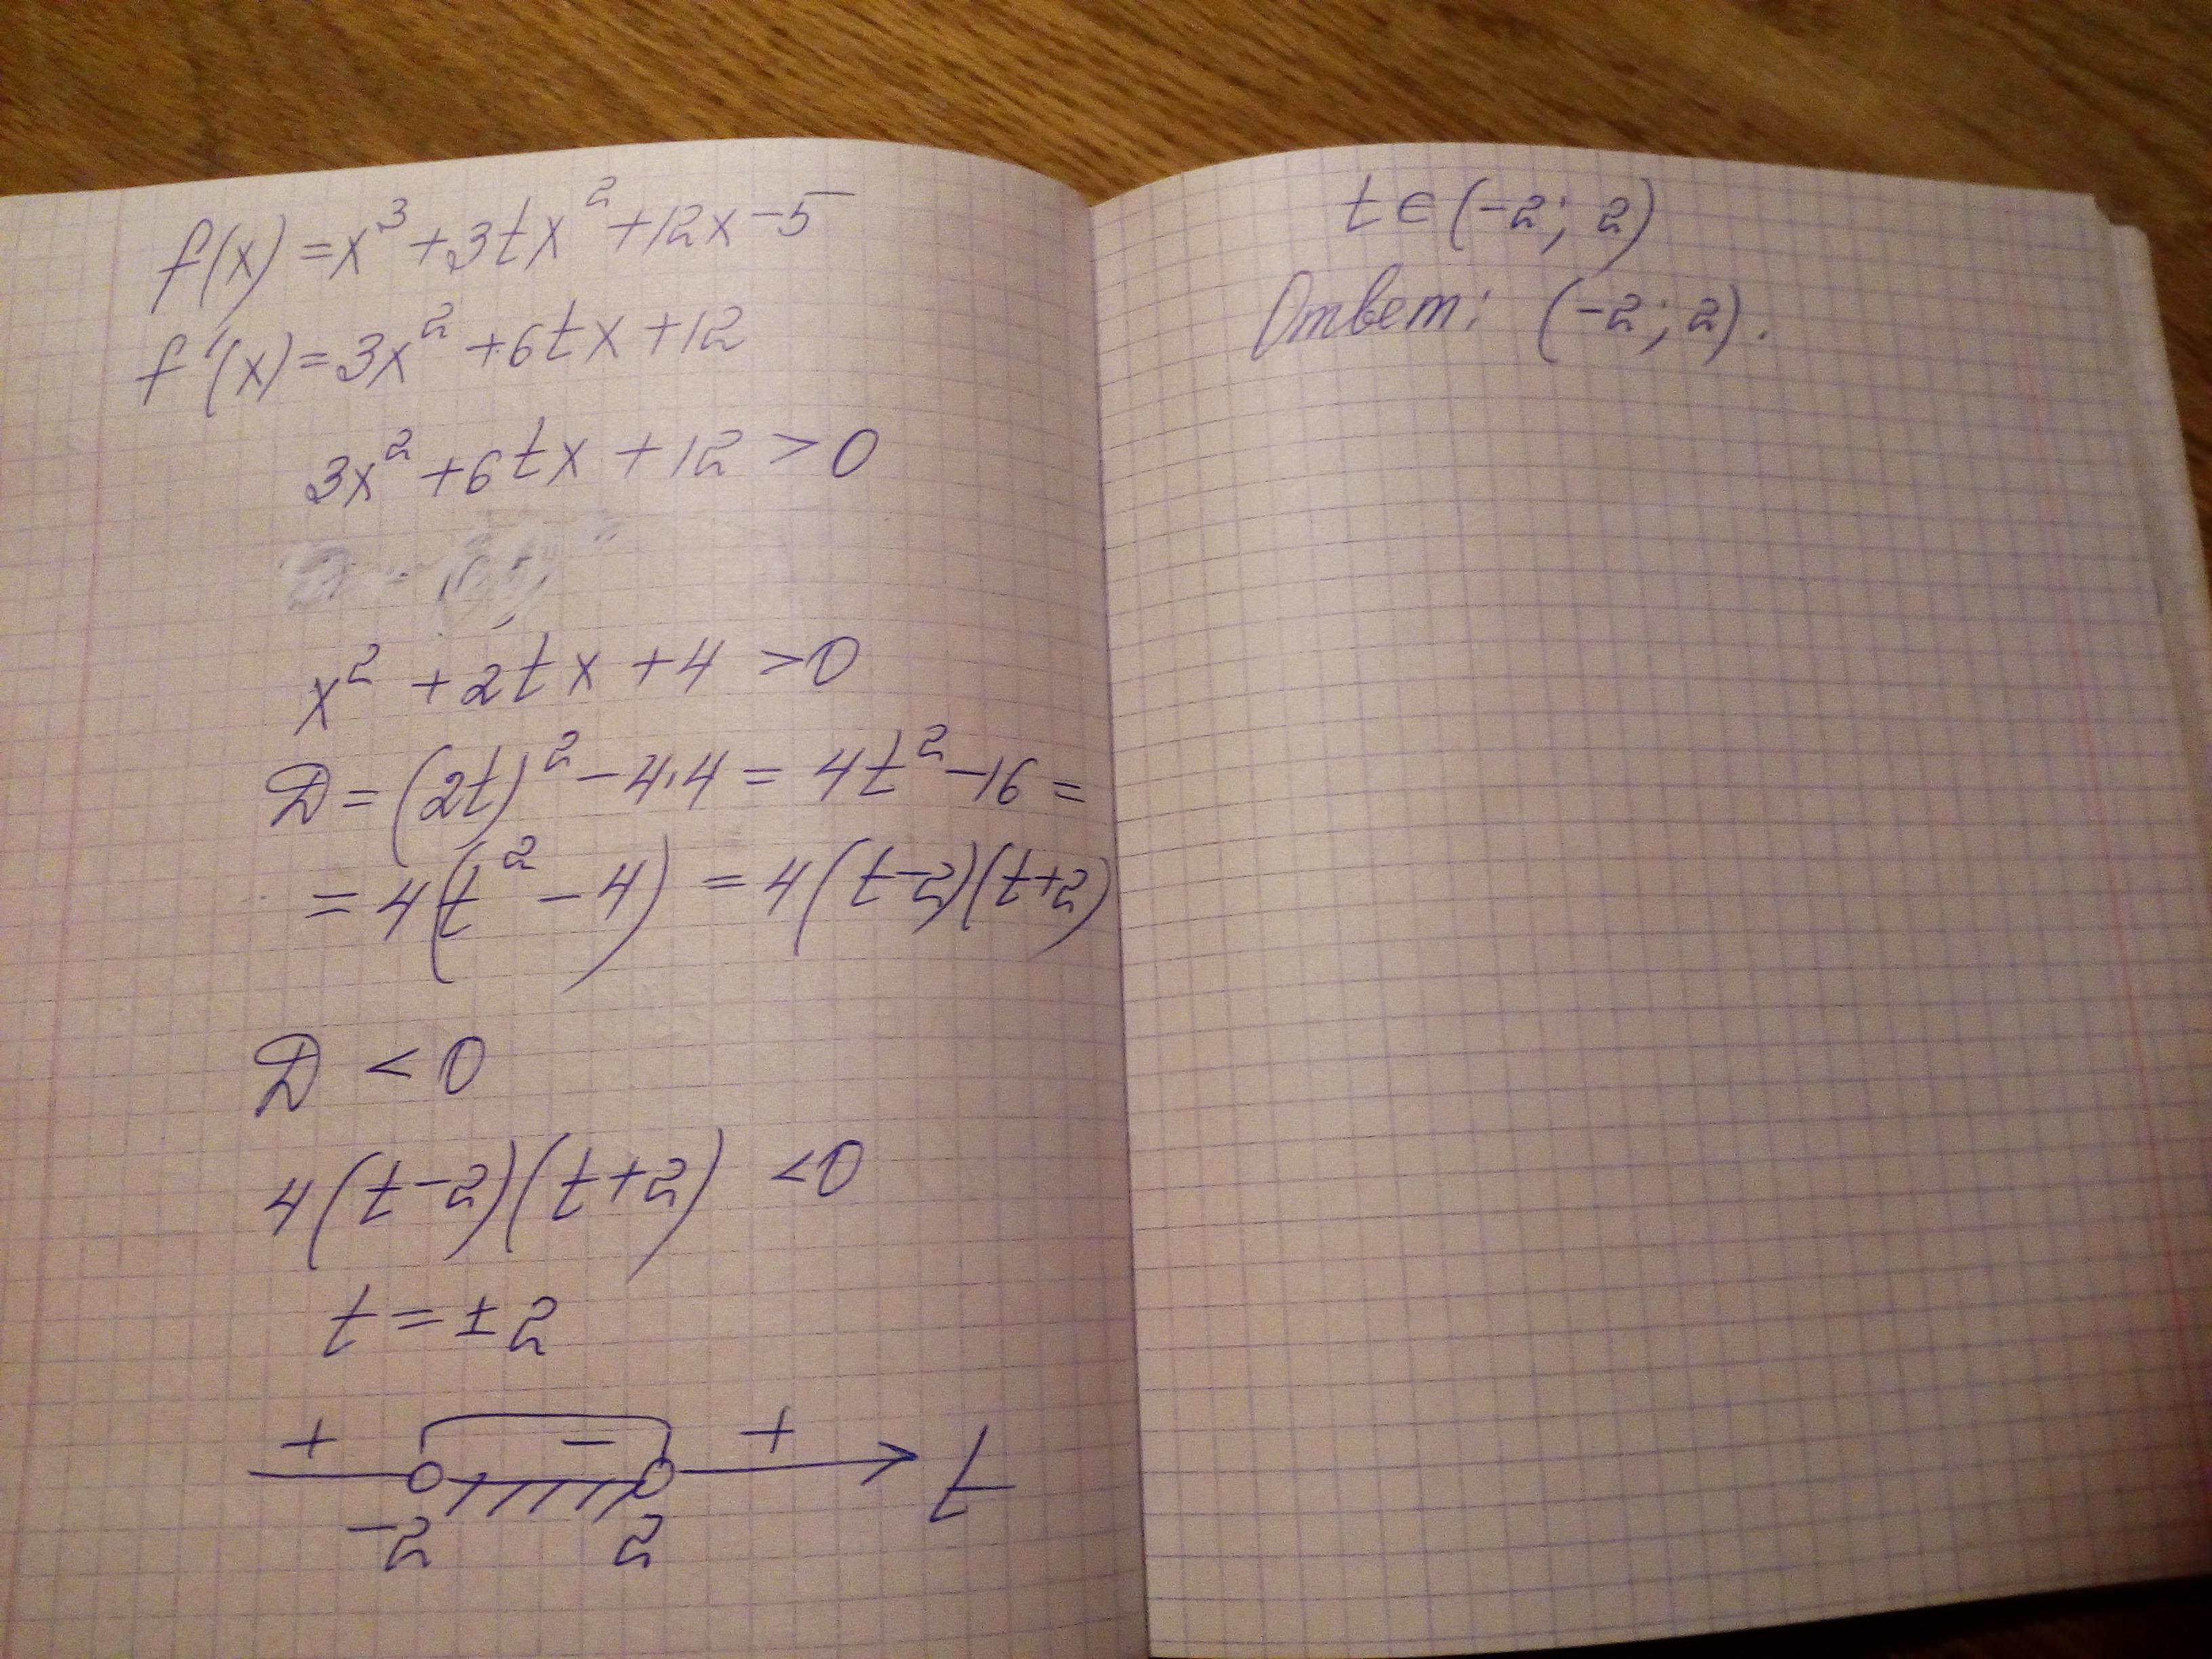 f(x) = x³ + 3tx² + 12x - 5
f'(x) = 3x² + 6tx + 12
3x² + 6tx + 12 > 0
x² + 2tx + 4 > 0
D = (2t)² - 4·4 = 4t² - 16 =
= 4(t² - 4) = 4(t-2)(t+2)
D < 0
4(t-2)(t+2) < 0
t = ± 2
+ - + t
-2 2
t ∈ (-2; 2)
Ответ: (-2; 2).